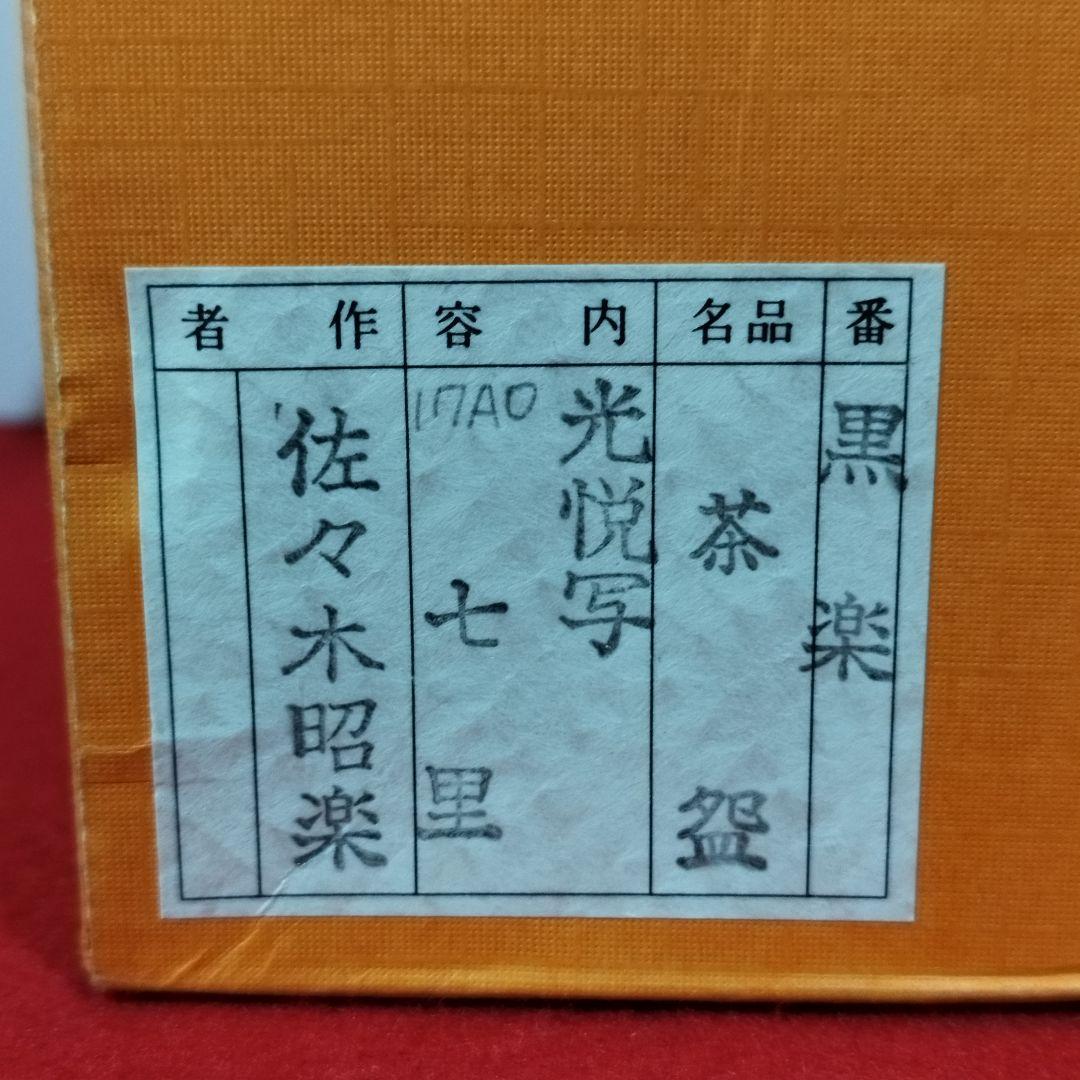 番
品名
内容
作者
黒楽
茶盌
光悦写
七里
17A0
佐々木昭楽